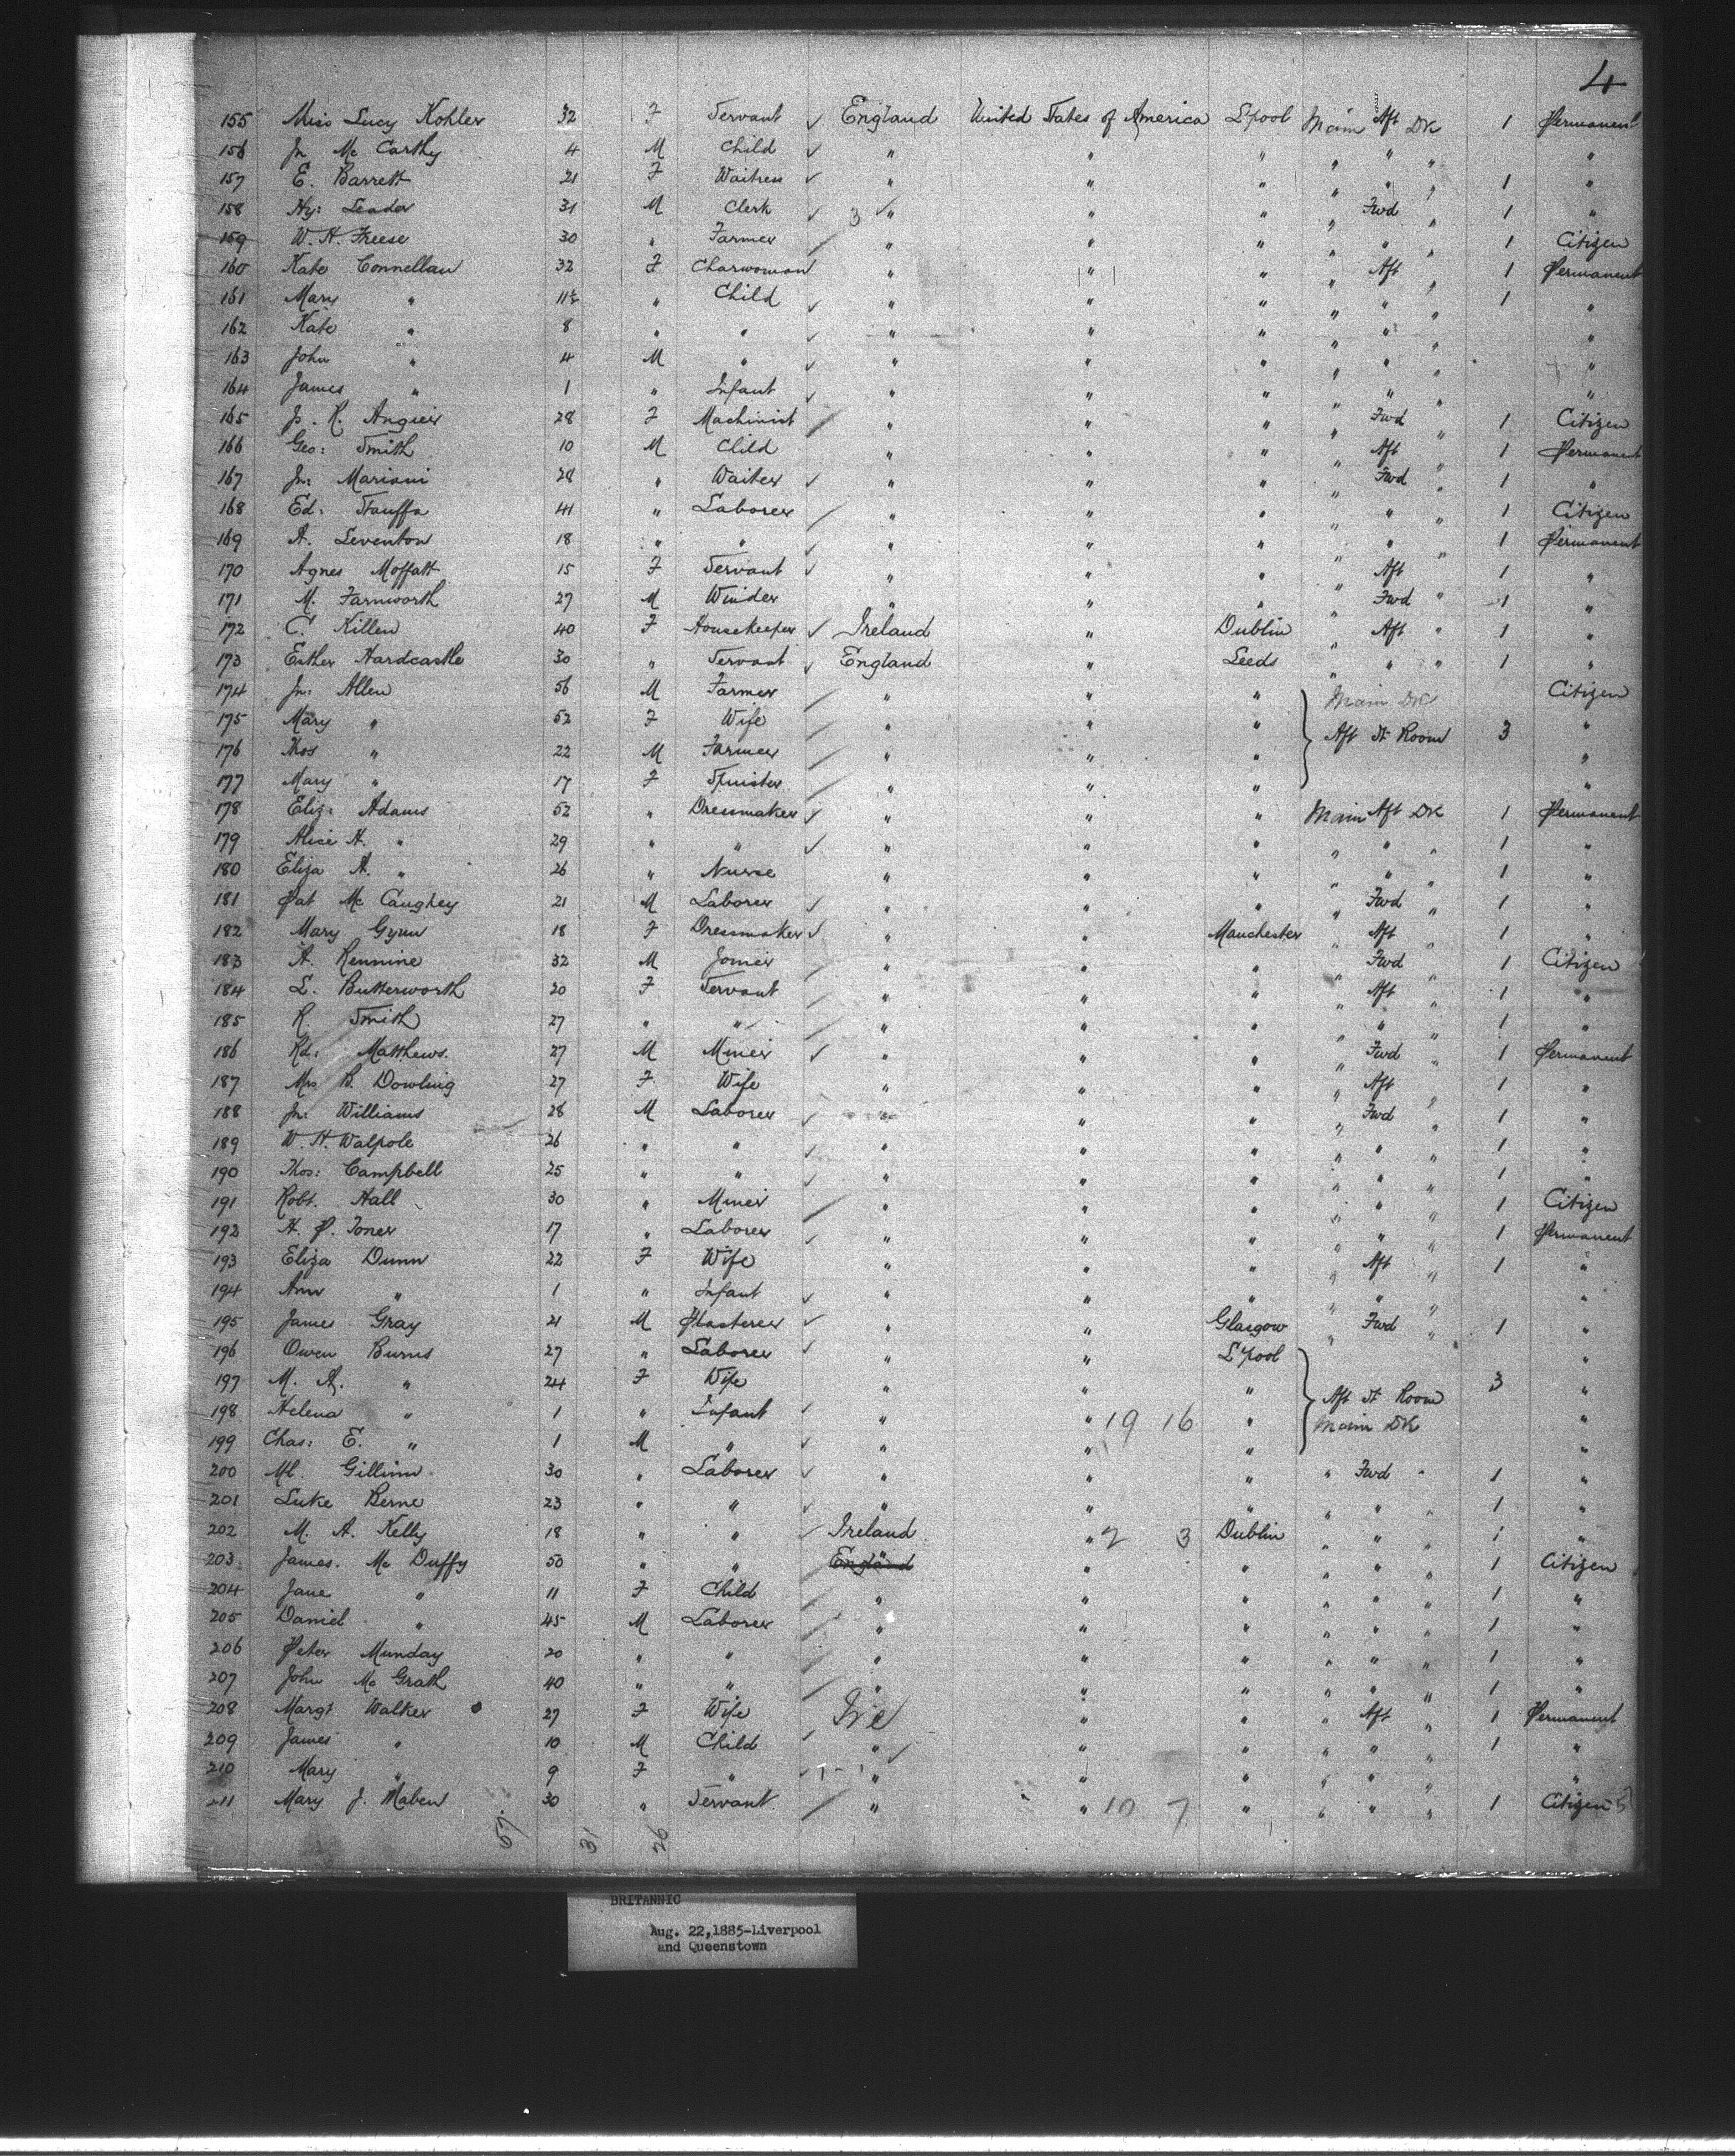 4
155 Miss Lucy Kohler 32 F Servant ✓ England United States of America L'pool Main Aft Dk 1 Permanent
156 Jn Mc Carthy 4 M Child ✓ " " " " " " "
157 E. Barrett 21 F Waitress ✓ " " " " " " 1 "
158 Hy: Leader 31 M Clerk ✓ 3 ✓ " " " " Fwd " 1 "
159 W. H. Freese 30 " Farmer / " " " " " " 1 Citizen
160 Kate Connellan 32 F Charwoman " " " " Aft " 1 Permanent
161 Mary " 11½ " Child ✓ " " " " " " 1 "
162 Kate " 8 " " ✓ " " " " " " "
163 John " 4 M " ✓ " " " " " " "
164 James " 1 " Infant ✓ " " " " " " "
165 J. R. Angier 28 F Machinist / " " " " Fwd " 1 Citizen
166 Geo: Smith 10 M Child " " " " Aft " 1 Permanent
167 Jn: Mariani 28 " Waiter ✓ " " " " Fwd " 1 "
168 Ed: Stauffa 41 " Laborer / " " " " " " 1 Citizen
169 A. Leventon 18 " " ✓ " " " " " " 1 Permanent
170 Agnes Moffatt 15 F Servant ✓ " " " " Aft " 1 "
171 M. Farnworth 27 M Winder " " " " Fwd " 1 "
172 C. Killen 40 F Housekeeper ✓ Ireland " Dublin " Aft " 1 "
173 Esther Hardcastle 30 " Servant ✓ England " Leeds " " " 1 "
174 Jn: Allen 56 M Farmer / " " " Main Dk Citizen
175 Mary " 52 F Wife / " " " Aft St Room 3 "
176 Thos " 22 M Farmer / " " " "
177 Mary " 17 F Spinster / " " " "
178 Eliz: Adams 52 " Dressmaker ✓ " " " Main Aft Dk 1 Permanent
179 Alice H. " 29 " " ✓ " " " " " " 1 "
180 Eliza A. " 26 " Nurse " " " " " " 1 "
181 Pat Mc Caughey 21 M Laborer ✓ " " " " Fwd " 1 "
182 Mary Gynn 18 F Dressmaker ✓ " " Manchester " Aft " 1 "
183 A. Rennine 32 M Joiner / " " " " Fwd " 1 Citizen
184 L. Butterworth 20 F Servant / " " " " Aft " 1 "
185 R. Smith 27 " " / " " " " " " 1 "
186 Rd: Matthews. 27 M Miner ✓ " " " " Fwd " 1 Permanent
187 Mrs B. Dowling 27 F Wife " " " " Aft " 1 "
188 Jn: Williams 28 M Laborer ✓ " " " " Fwd " 1 "
189 W. H. Walpole 26 " " ✓ " " " " " " 1 "
190 Thos: Campbell 25 " " ✓ " " " " " " 1 "
191 Robt. Hall 30 " Miner / " " " " " " 1 Citizen
192 H. P. Jones 17 " Laborer ✓ " " " " " " 1 Permanent
193 Eliza Dunn 22 F Wife " " " " Aft " 1 "
194 Ann " 1 " Infant ✓ " " " " " " "
195 James Gray 21 M Plasterer ✓ " " Glasgow " Fwd " 1 "
196 Owen Burns 27 " Laborer ✓ " " L'pool "
197 M. A. " 24 F Wife " " " Aft St Room 3 "
198 Helena " 1 " Infant ✓ " " 19 16 " Main Dk "
199 Chas: E. " 1 M " ✓ " " " "
200 Ml. Gillinn 30 " Laborer ✓ " " " " Fwd " 1 "
201 Luke Berne 23 " " ✓ " " " " " " 1 "
202 M. A. Kelly 18 " " ✓ Ireland " 2 3 Dublin " " " 1 "
203 James. Mc Duffy 50 " " / England " " " " " 1 Citizen
204 Jane " 11 F Child / " " " " " " 1 "
205 Daniel " 45 M Laborer / " " " " " " 1 "
206 Peter Munday 20 " " / " " " " " " 1 "
207 John Mc Grath 40 " " / " " " " " " 1 "
208 Margt Walker 27 F Wife Ire " " " Aft " 1 Permanent
209 James " 10 M Child ✓ " ✓ " " " " " 1 "
210 Mary " 9 F " ✓ " " " " " " "
211 Mary J. Maben 30 " Servant / " " 10 7 " " " " 1 Citizen
57. 31 26
BRITANNIC
Aug. 22,1885-Liverpool
and Queenstown